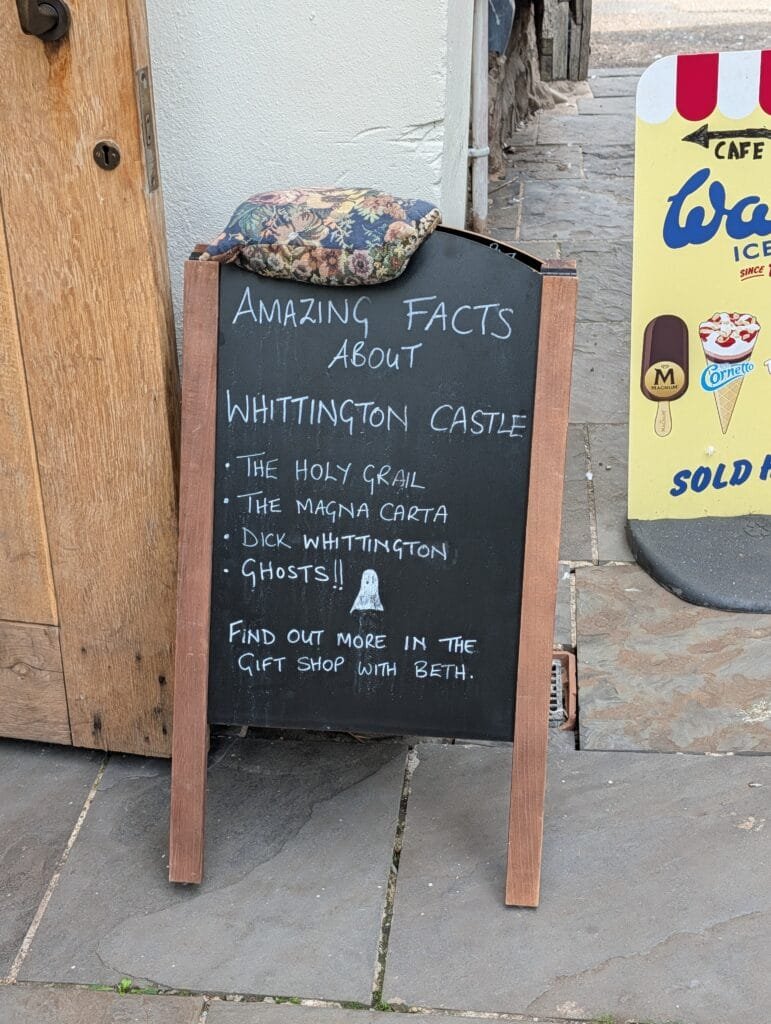 AMAZING FACTS
ABOUT
WHITTINGTON CASTLE
• THE HOLY GRAIL
• THE MAGNA CARTA
• DICK WHITTINGTON
• GHOSTS!!
FIND OUT MORE IN THE
GIFT SHOP WITH BETH.
CAFE
Wa
ICE
SINCE
M
MAGNUM
Cornetto
SOLD